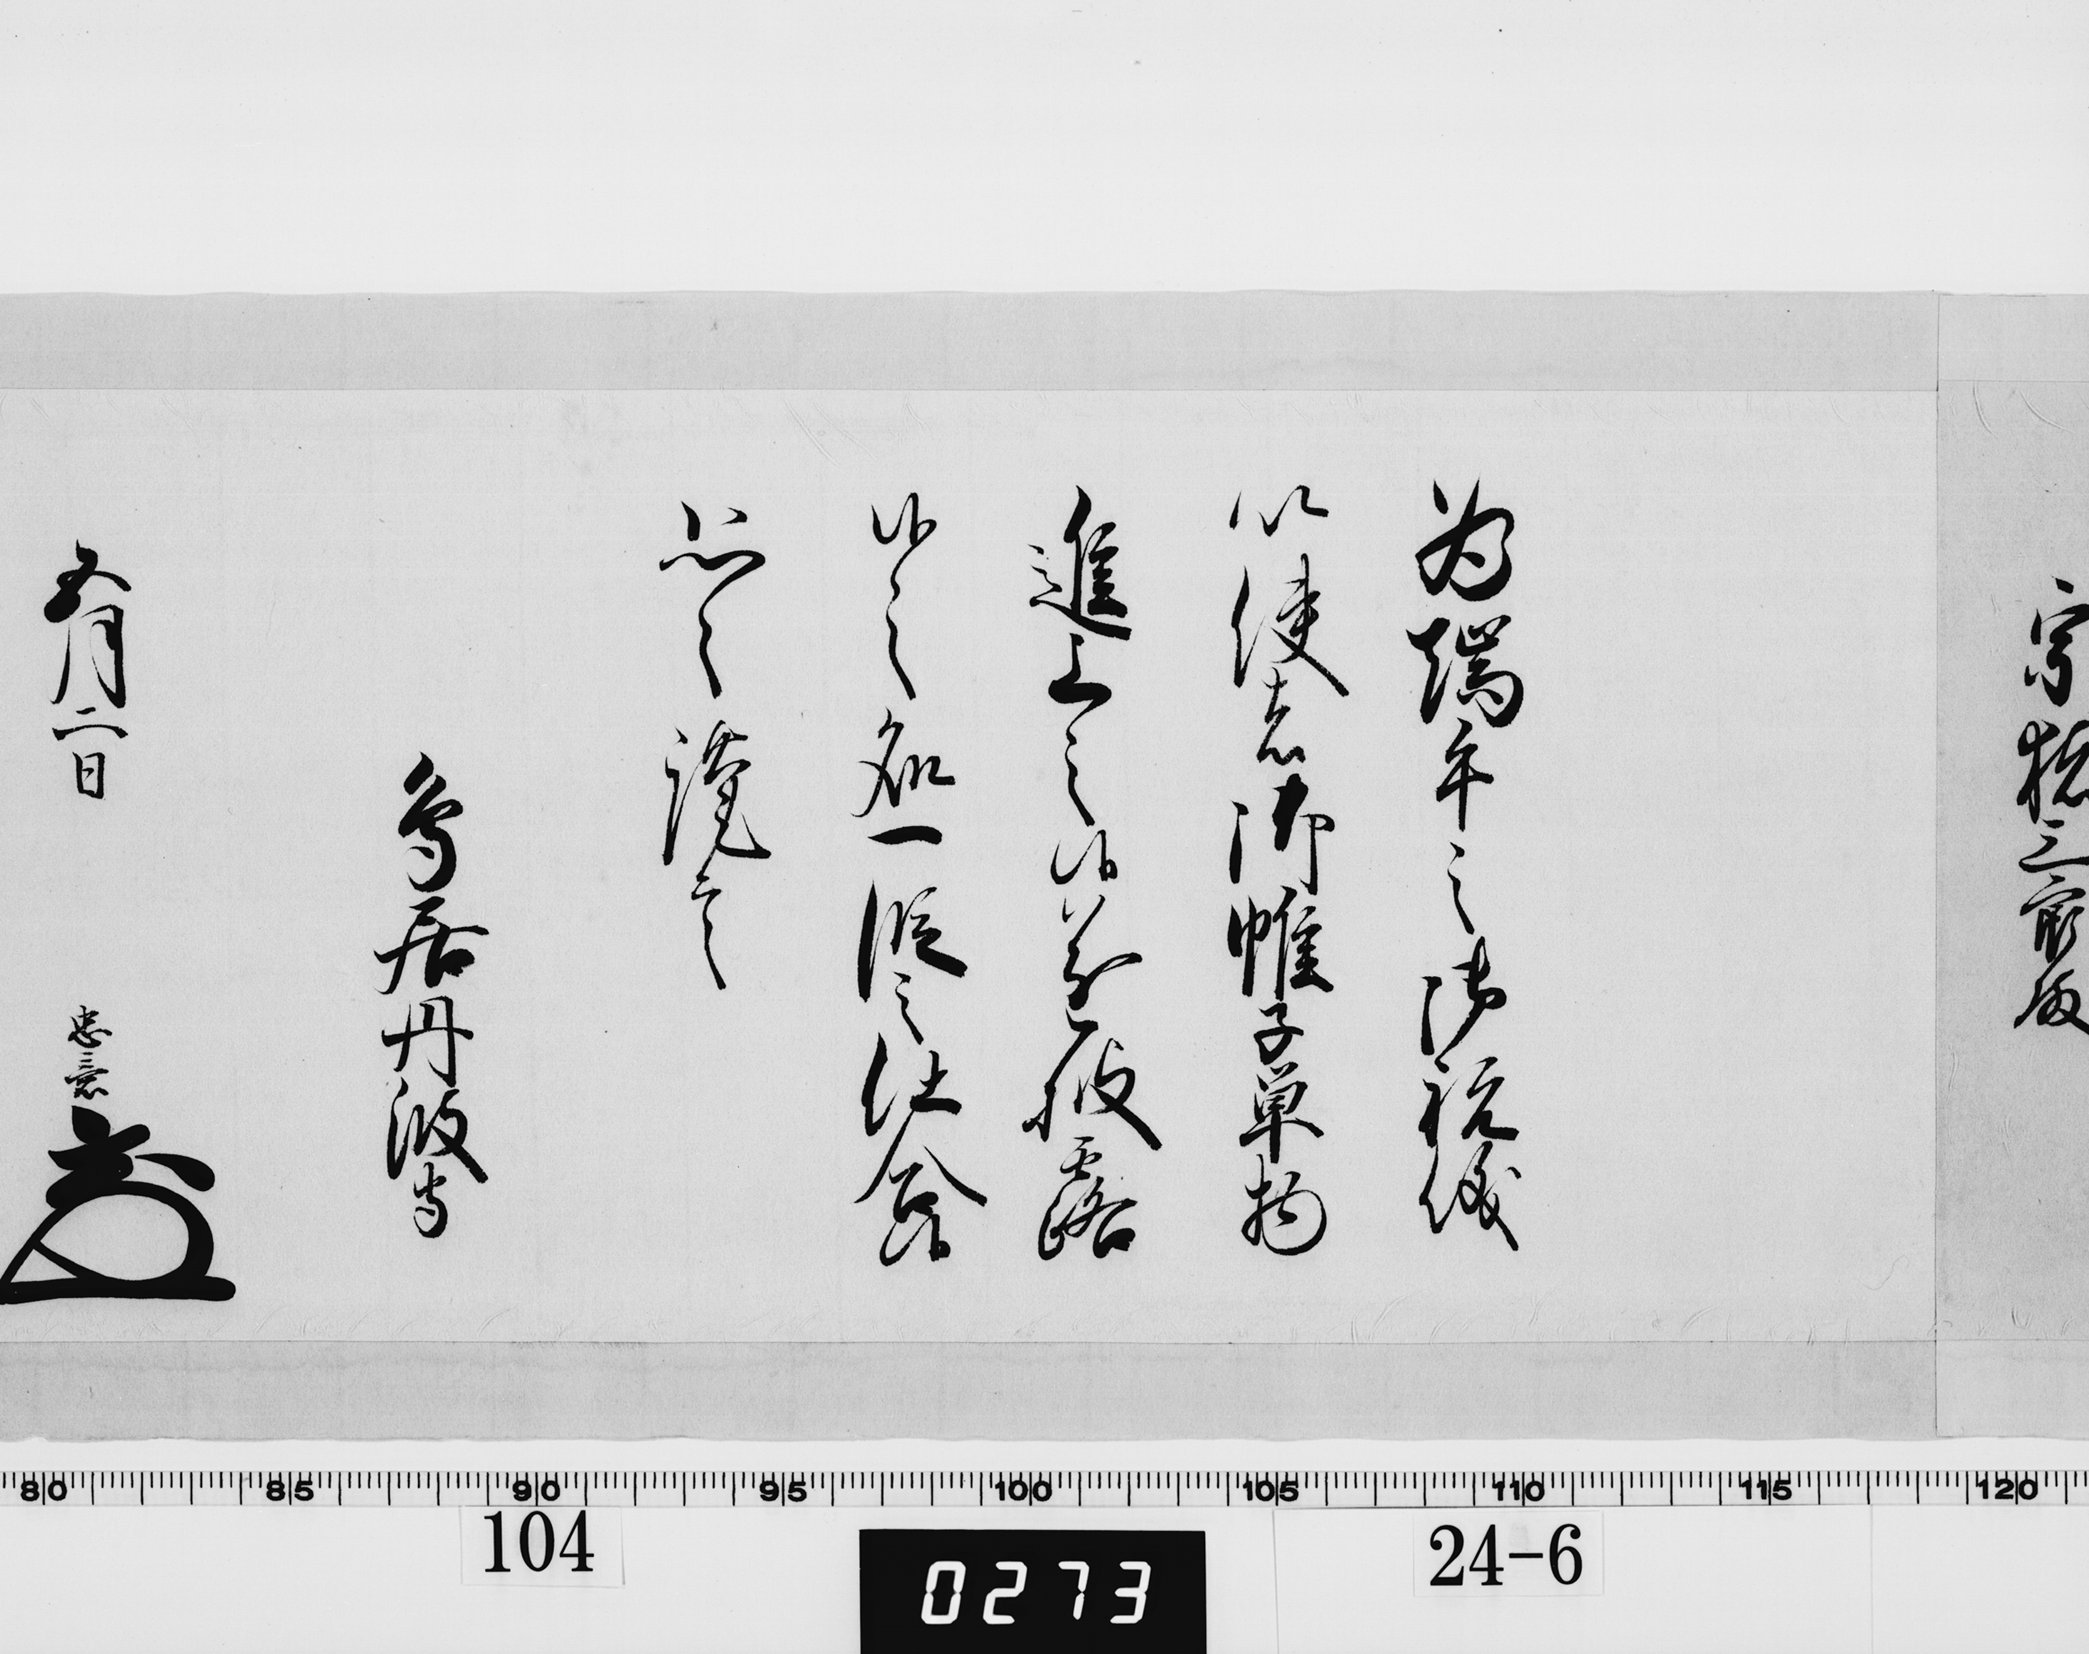 宗猪三郎殿
為端午之御祝儀
以使者御帷子単物
進上之候遂披露
候之処一段之仕合候
恐々謹言
鳥居丹波守
五月二日
忠意
80 85 90 95 100 105 110 115 120
104
0273
24-6